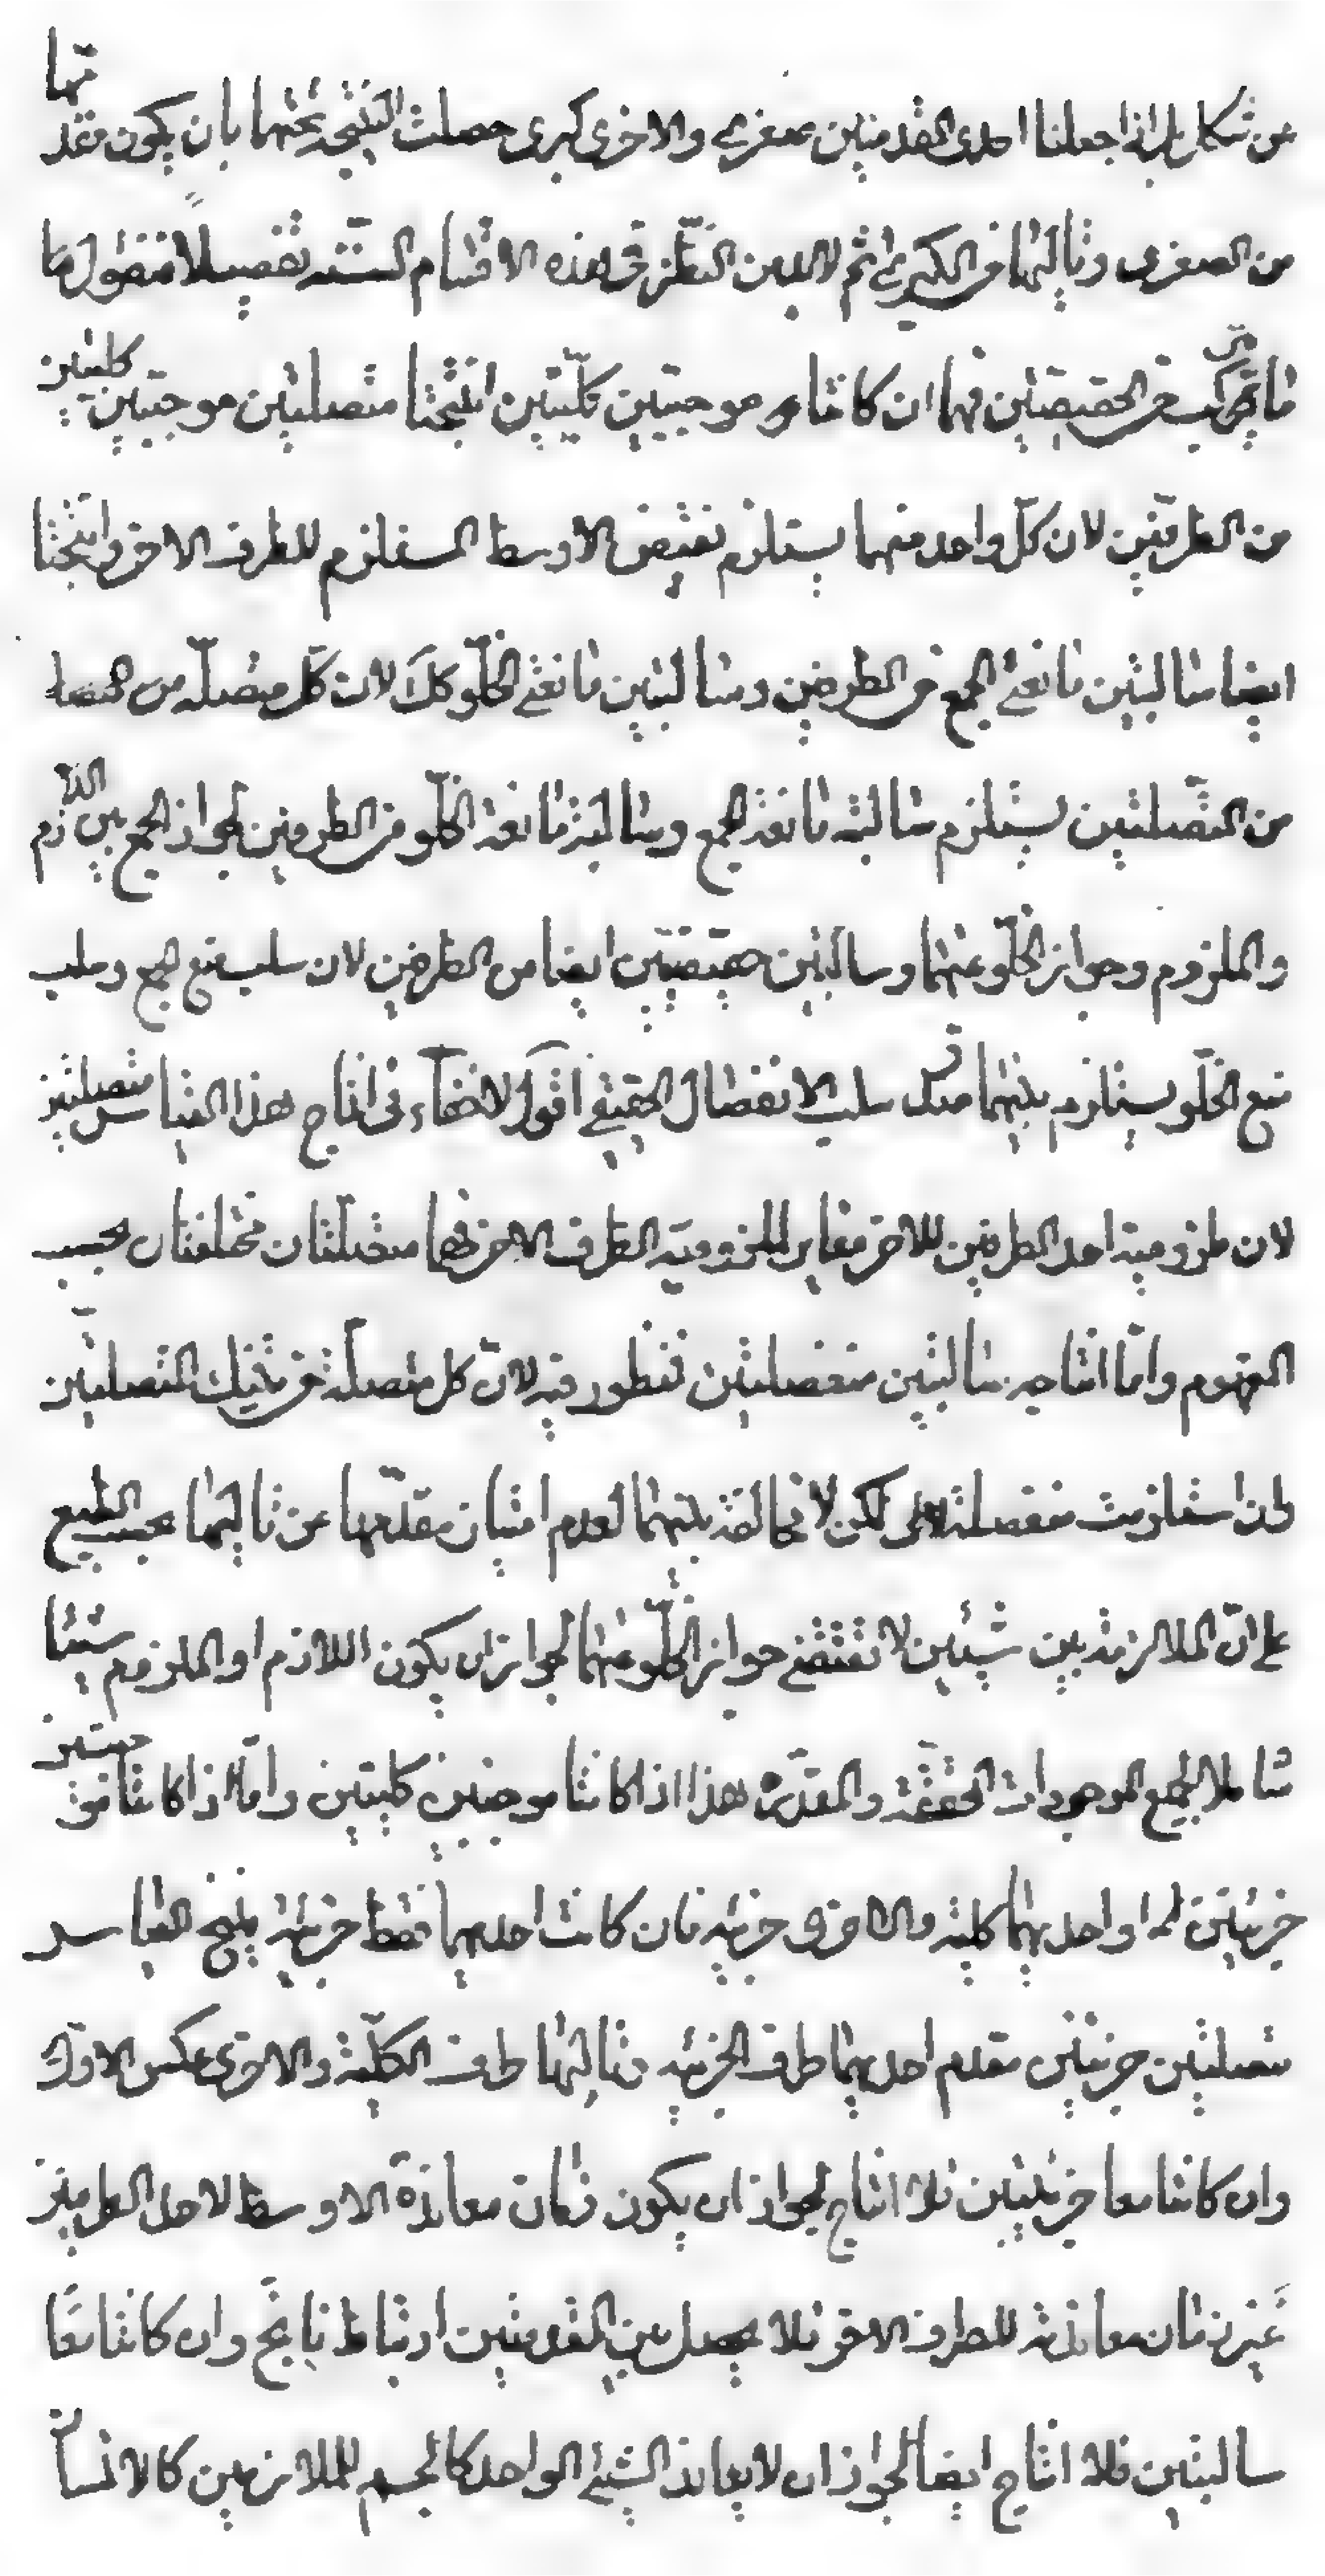 عن شكل بل اذا جعلنا احدى المقدمتين صغرى والاخرى كبرى حصلت النتيجة عنهما بان يكون مقدمها
من الصغرى وتاليها من الكبرى ثم لابد من النظر في هذه الاقسام الستة تفصيلا فنقول اما
ما تركب من الحقيقتين فهما ان كانتا موجبتين كليتين انتجتا متصلتين موجبتين كليتين
من الطرفين لان كل واحد منهما يستلزم نقيض الاوسط المستلزم للطرف الاخر وانتجتا
ايضا سالبتين مانعتي الجمع من الطرفين وسالبتين مانعتي الخلو كك لان كل متصلة من
من المتصلتين يستلزم سالبة مانعة الجمع وسالبة مانعة الخلو من الطرفين لجواز الجمع بين اللازم
والملزوم وجواز الخلو عنهما وسالبتين حقيقيتين ايضا من الطرفين لان سلب منع الجمع وسلب
منع الخلو يستلزم بينهما صدق سلب الانفصال الحقيقي اقول لا خفاء في انتاج هذا القياس متصلتين
لان ملزومية احد الطرفين للاخر مغاير للملزومية الطرف الاخر فهما متصلتان مختلفتان بحسب
المفهوم واما انتاجه سالبتين منفصلتين فمنظور فيه لان كل متصلة من تينك المتصلتين
وان استلزمت منفصلة اخرى لكن لا مخالفة بينهما لعدم امتياز مقدمها عن تاليها بحسب الطبع
على ان الملازمة بين شيئين لا تقتضي جواز الخلو عنهما لجواز ان يكون اللازم او الملزوم شيئا
شاملا لجميع الموجودات المحققة والمقدرة هذا اذا كانتا موجبتين كليتين واما اذا كانتا موجبتين
جزئيتين او احديهما كلية والاخرى جزئية فان كانت احديهما فقط جزئية ينتج القياس
متصلتين جزئيتين مقدم احديهما طرف الجزئية وتاليها طرف الكلية والاخرى عكس الاول
وان كانتا معا جزئيتين فلا انتاج لجواز ان يكون زمان معاندة الاوسط لاحد الطرفين
غير زمان معاندته للطرف الاخر فلا يحصل بين المقدمتين ارتباط ناتج وان كانتا معا
سالبتين فلا انتاج ايضا لجواز ان لا يعاند الشيئ الواحد كالجسم للملازمين كالانسان